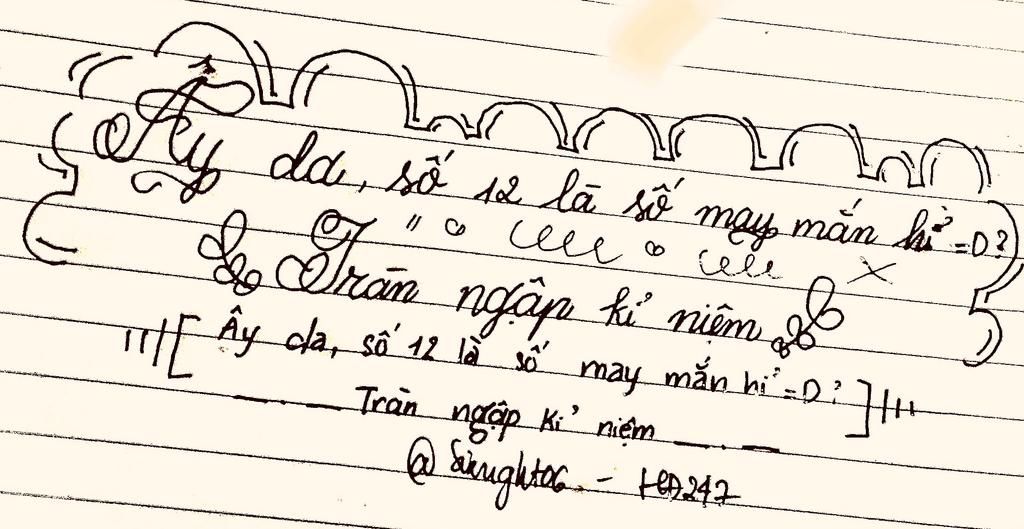 Ấy da, số 12 là số may mắn hỉ =D?
Tràn ngập kỉ niệm
Ây da, số 12 là số may mắn hỉ =D?
Tràn ngập kỉ niệm